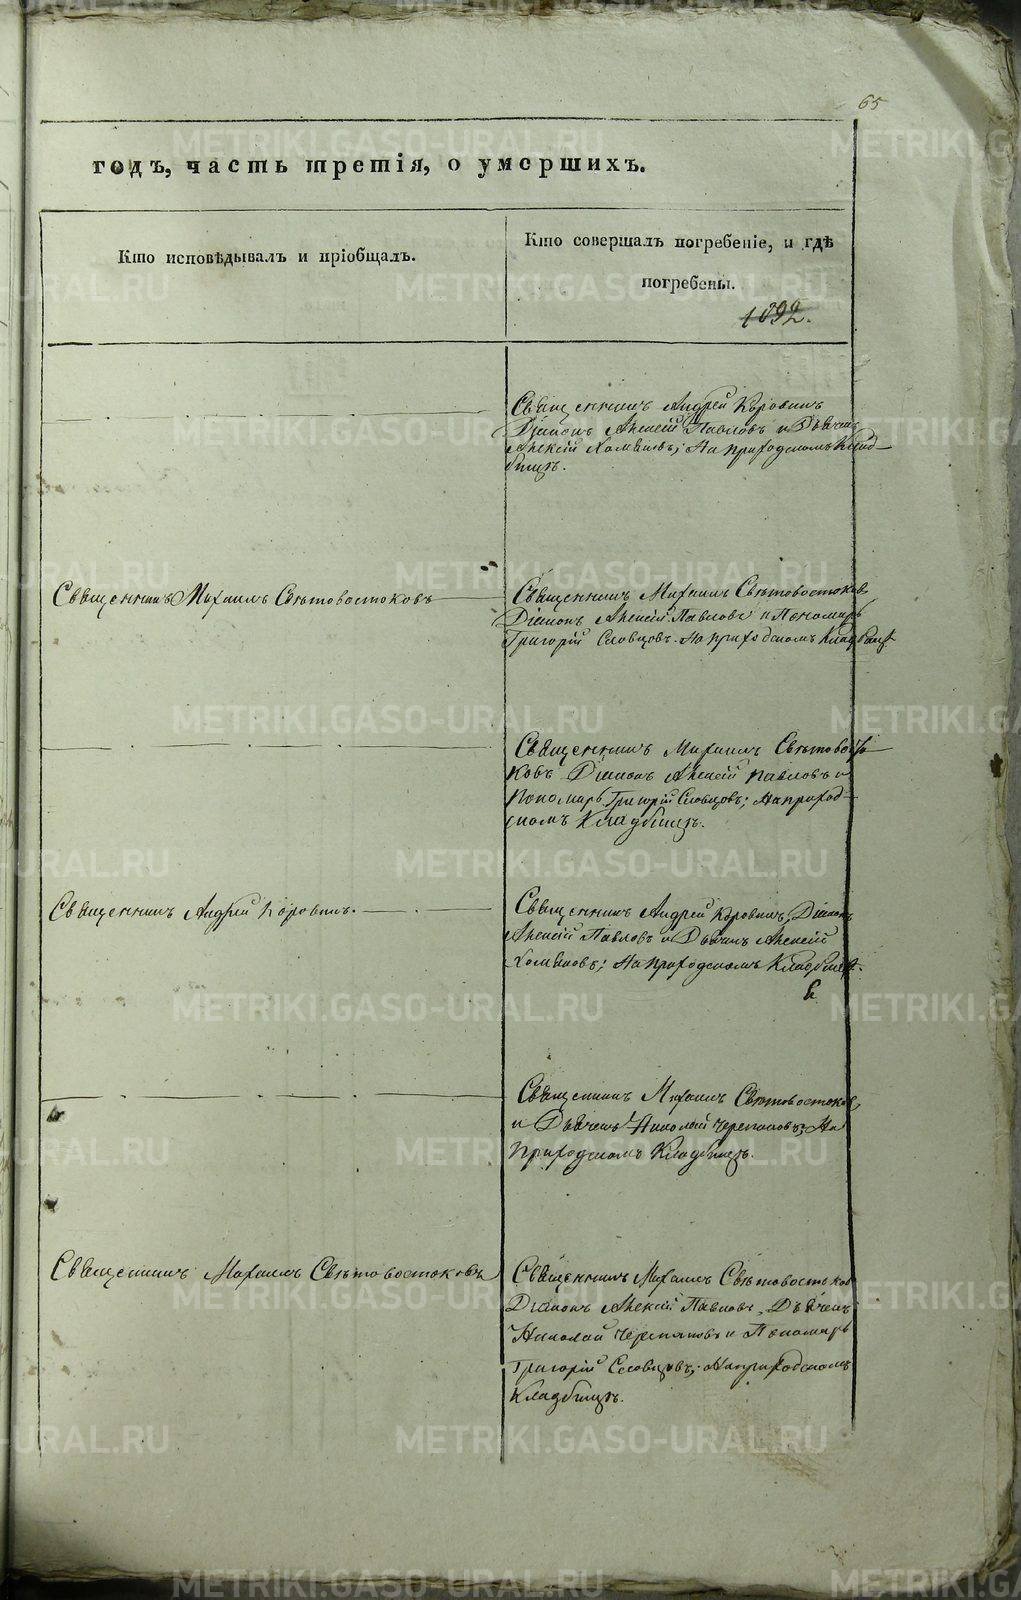 65
годъ, часть третія, о умершихъ.
Кто исповѣдывалъ и пріобщалъ.
Кто совершалъ погребеніе, и гдѣ
погребены.
1892.
Священникъ Андрей Коровинъ
Діаконъ Алексій Павловъ и Дьячекъ
Алексій Хомяковъ; На приходскомъ Клад-
бищѣ.
Священникъ Михаилъ Свѣтовостоковъ
Священникъ Михаилъ Свѣтовостоковъ
Діаконъ Алексій Павловъ и Пономарь
Григорій Словцовъ. На приходскомъ Кладбищѣ
Священникъ Михаилъ Свѣтовосто-
ковъ Діаконъ Алексій Павловъ и
Пономарь Григорій Словцовъ; На приход-
скомъ Кладбищѣ.
Священникъ Андрей Коровинъ.
Священникъ Андрей Коровинъ, Діаконъ
Алексій Павловъ и Дьячекъ Алексій
Хомяковъ; На приходскомъ Кладбищѣ.
Священникъ Михаилъ Свѣтовостоковъ,
и Дьячекъ Николай Черепановъ; На
Приходскомъ Кладбищѣ.
Священникъ Михаилъ Свѣтовостоковъ
Священникъ Михаилъ Свѣтовостоковъ
Діаконъ Алексій Павловъ, Дьячекъ
Николай Черепановъ и Пономарь
Григорій Словцовъ; На приходскомъ
Кладбищѣ.
METRIKI.GASO-URAL.RU